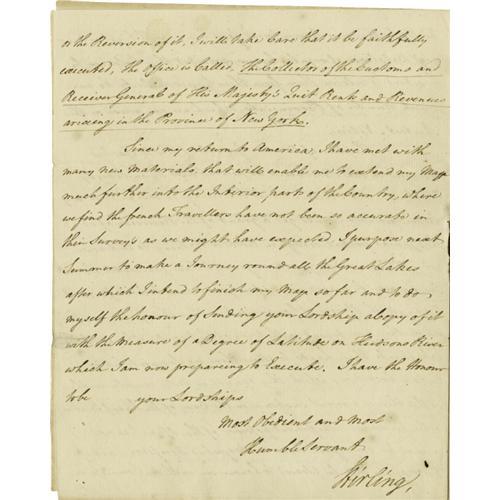 or the Reversion of it, I will take Care that it be faithfully
executed, the office is Called, the Collector of the Customs and
Receiver General of His Majesty's Quit Rents and Revenues
arising in the Province of New York.
Since my return to America, I have met with
many new Materials, that will enable me to extend my Map
much further into the Interior parts of the Country, where
we find the french Travellers have not been so accurate in
their Surveys as we might have expected, I purpose next
Summer to make a Journey round all the Great Lakes
after which I intend to finish my Map so far and to do
myself the honour of Sending your Lordship a Copy of it
with the measure of a Degree of Latitude on Hudsons River
which I am now prepareing to Execute. I have the Honour
to be your Lordships
Most Obedient and Most
Humble Servant
Stirling,